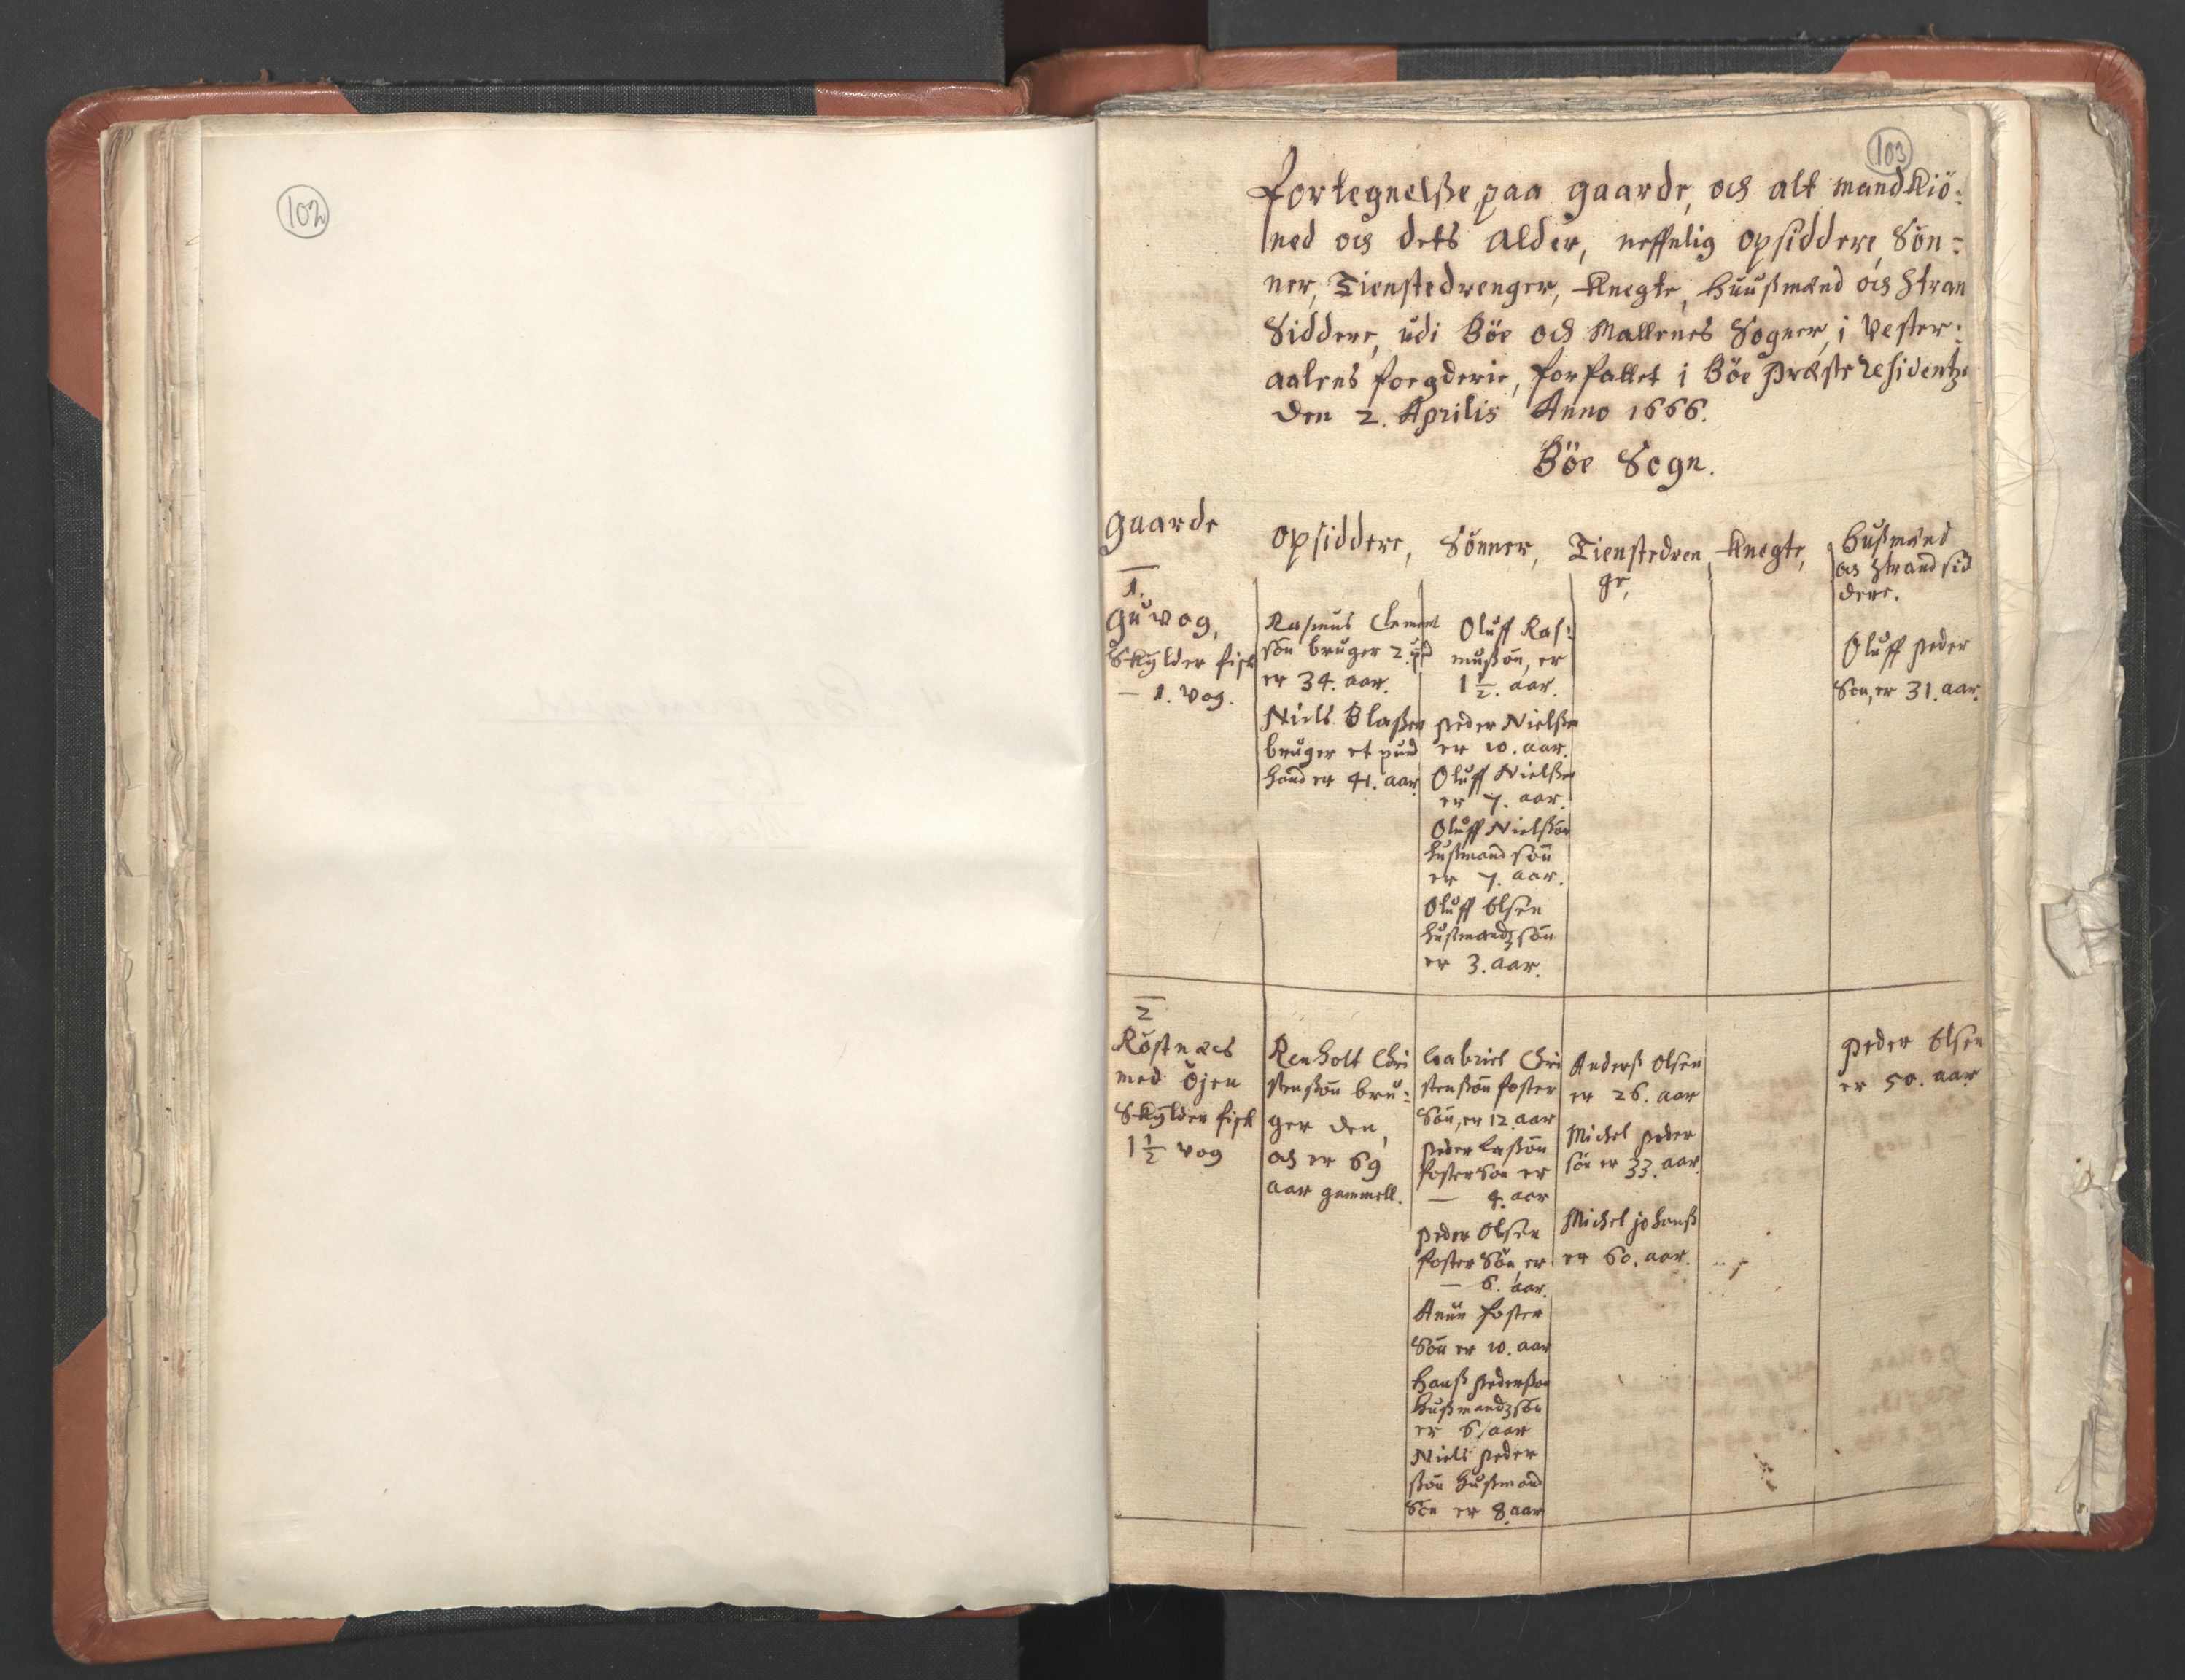 102
103
Fortegnelße, paa gaarde, och alt mandkiö-
ned och dets Alder, neffnlig opsiddere, Sön-
ner, Tienstedrenger, Knegte, Huußmænd och Stran
Siddere, udi Böe och Mallnes Sogner, i Vester-
aalens fogderie, forfattet i Böe Præste residentz
den 2. Aprilis Anno 1666.
Böe Sogn.
Gaarde
opsiddere,
Sönner,
Tienstedren
ge,
Knegte,
Hußmænd
och Strandsid
dere.
1.
Guvog,
Skylder fisk
— 1. vog.
Rasmus Clement
sön bruger 2 pd
er 34. aar.
Niels Olaßen
bruger et pund
hand er 41. aar
Oluff Ras:
mußön, er
1 1/2. aar.
Peder Nielßen
er 10. aar.
Oluff Nielßen
er 7. aar.
Oluff Nielßön
hußmand sön
er 7. aar.
Oluff Olsen
hußmandz sön
er 3. aar.
Oluff Peder
Sön, er 31. aar.
2
Röstnæs
med Öjen
Skylder fisk
1 1/2 vog
Renholt Chri
stenßön bru-
ger den,
och er 69
aar gammell.
Gabriel Chri
stenßön foster
Sön, er 12. aar
Peder Laßön
foster Sön er
— 4. aar
Peder Olsen
foster Sön, er
— 6. aar.
Anun foster
Sön er 10. aar
Hanß Pederßön
Hußmandz sön
er 6 aar
Niels Peder
ßön Hußmand
Sön er 8. aar
Anderß Olsen
er 26. aar
Michel Peder
sön er 33. aar.
Michel johanß
er 60. aar.
Peder Olsen
er 50. aar